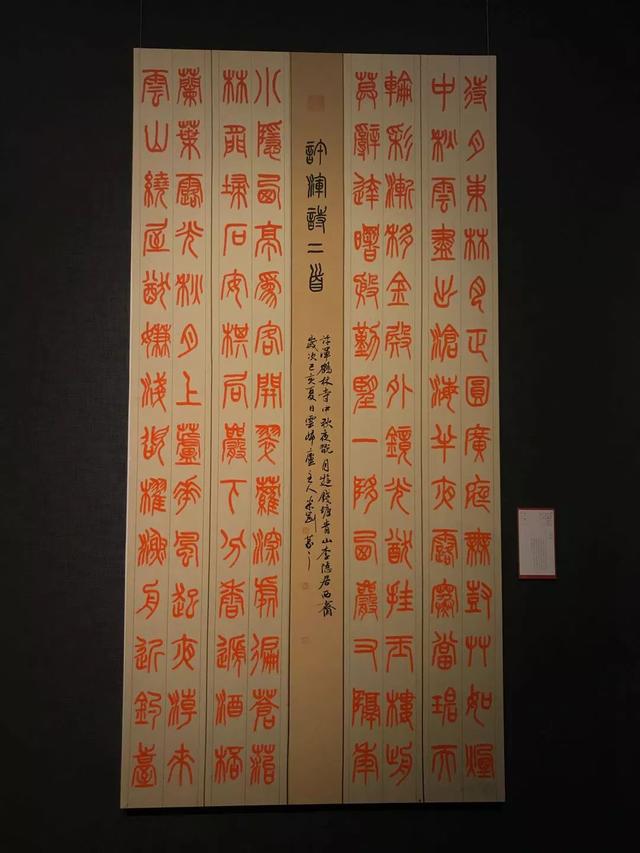 待月東林月正圓廣庭無樹艸如煙
中秋雲盡出滄海半夜露寒當碧天
輪彩漸移金殿外鏡光猶挂玉樓前
莫辭達曙殷勤望一墮西巖又隔年
許渾詩二首
許渾鶴林寺中秋夜翫月題錢塘青山李隱居西齋
歲次己亥夏日雲歸廬主人米釗篆之
小隱西亭為客開翠蘿深處徧蒼苔
林間掃石安棋局巖下分香遞酒桮
蘭葉露光秋月上蘆花風起夜潮來
雲山繞屋猶嫌淺欲櫂漁舟近釣臺